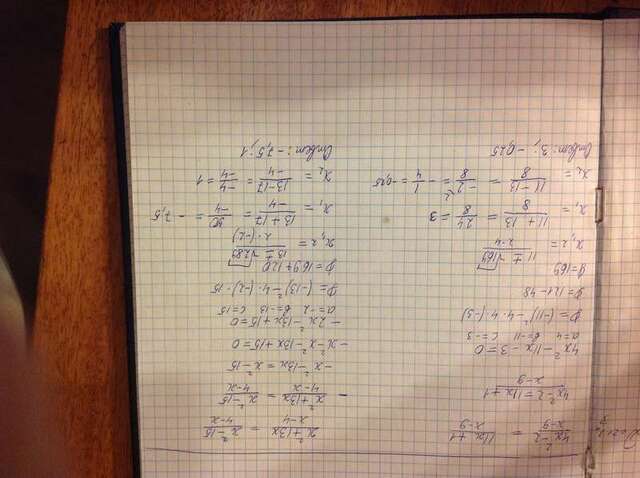 (4x²-2)/(x-9) = (11x+1)/(x-9)
(4x²-2=11x+1)/(x-9)
4x²-11x-3=0
a=4 b=-11 c=-3
D=(-11)²-4·4·(-3)
D=121-48
D=169
x₁,₂ = (11±√169)/(2·4)
x₁ = (11+13)/8 = 24/8 = 3
x₂ = (11-13)/8 = -2/8 = -1/4 = -0,25
Ответ: 3; -0,25
(x²+13x)/(x-4) = (x²-15)/(4-x)
-(x²+13x)/(4-x) = (x²-15)/(4-x)
-x²-13x = x²-15
-x²-x²-13x+15=0
-2x²-13x+15=0
a=-2 b=-13 c=15
D=(-13)²-4·(-2)·15
D=169+120
x₁,₂ = (13±√289)/(2·(-2))
x₁ = (13+17)/-4 = 30/-4 = -7,5
x₂ = (13-17)/-4 = -4/-4 = 1
Ответ: -7,5; 1